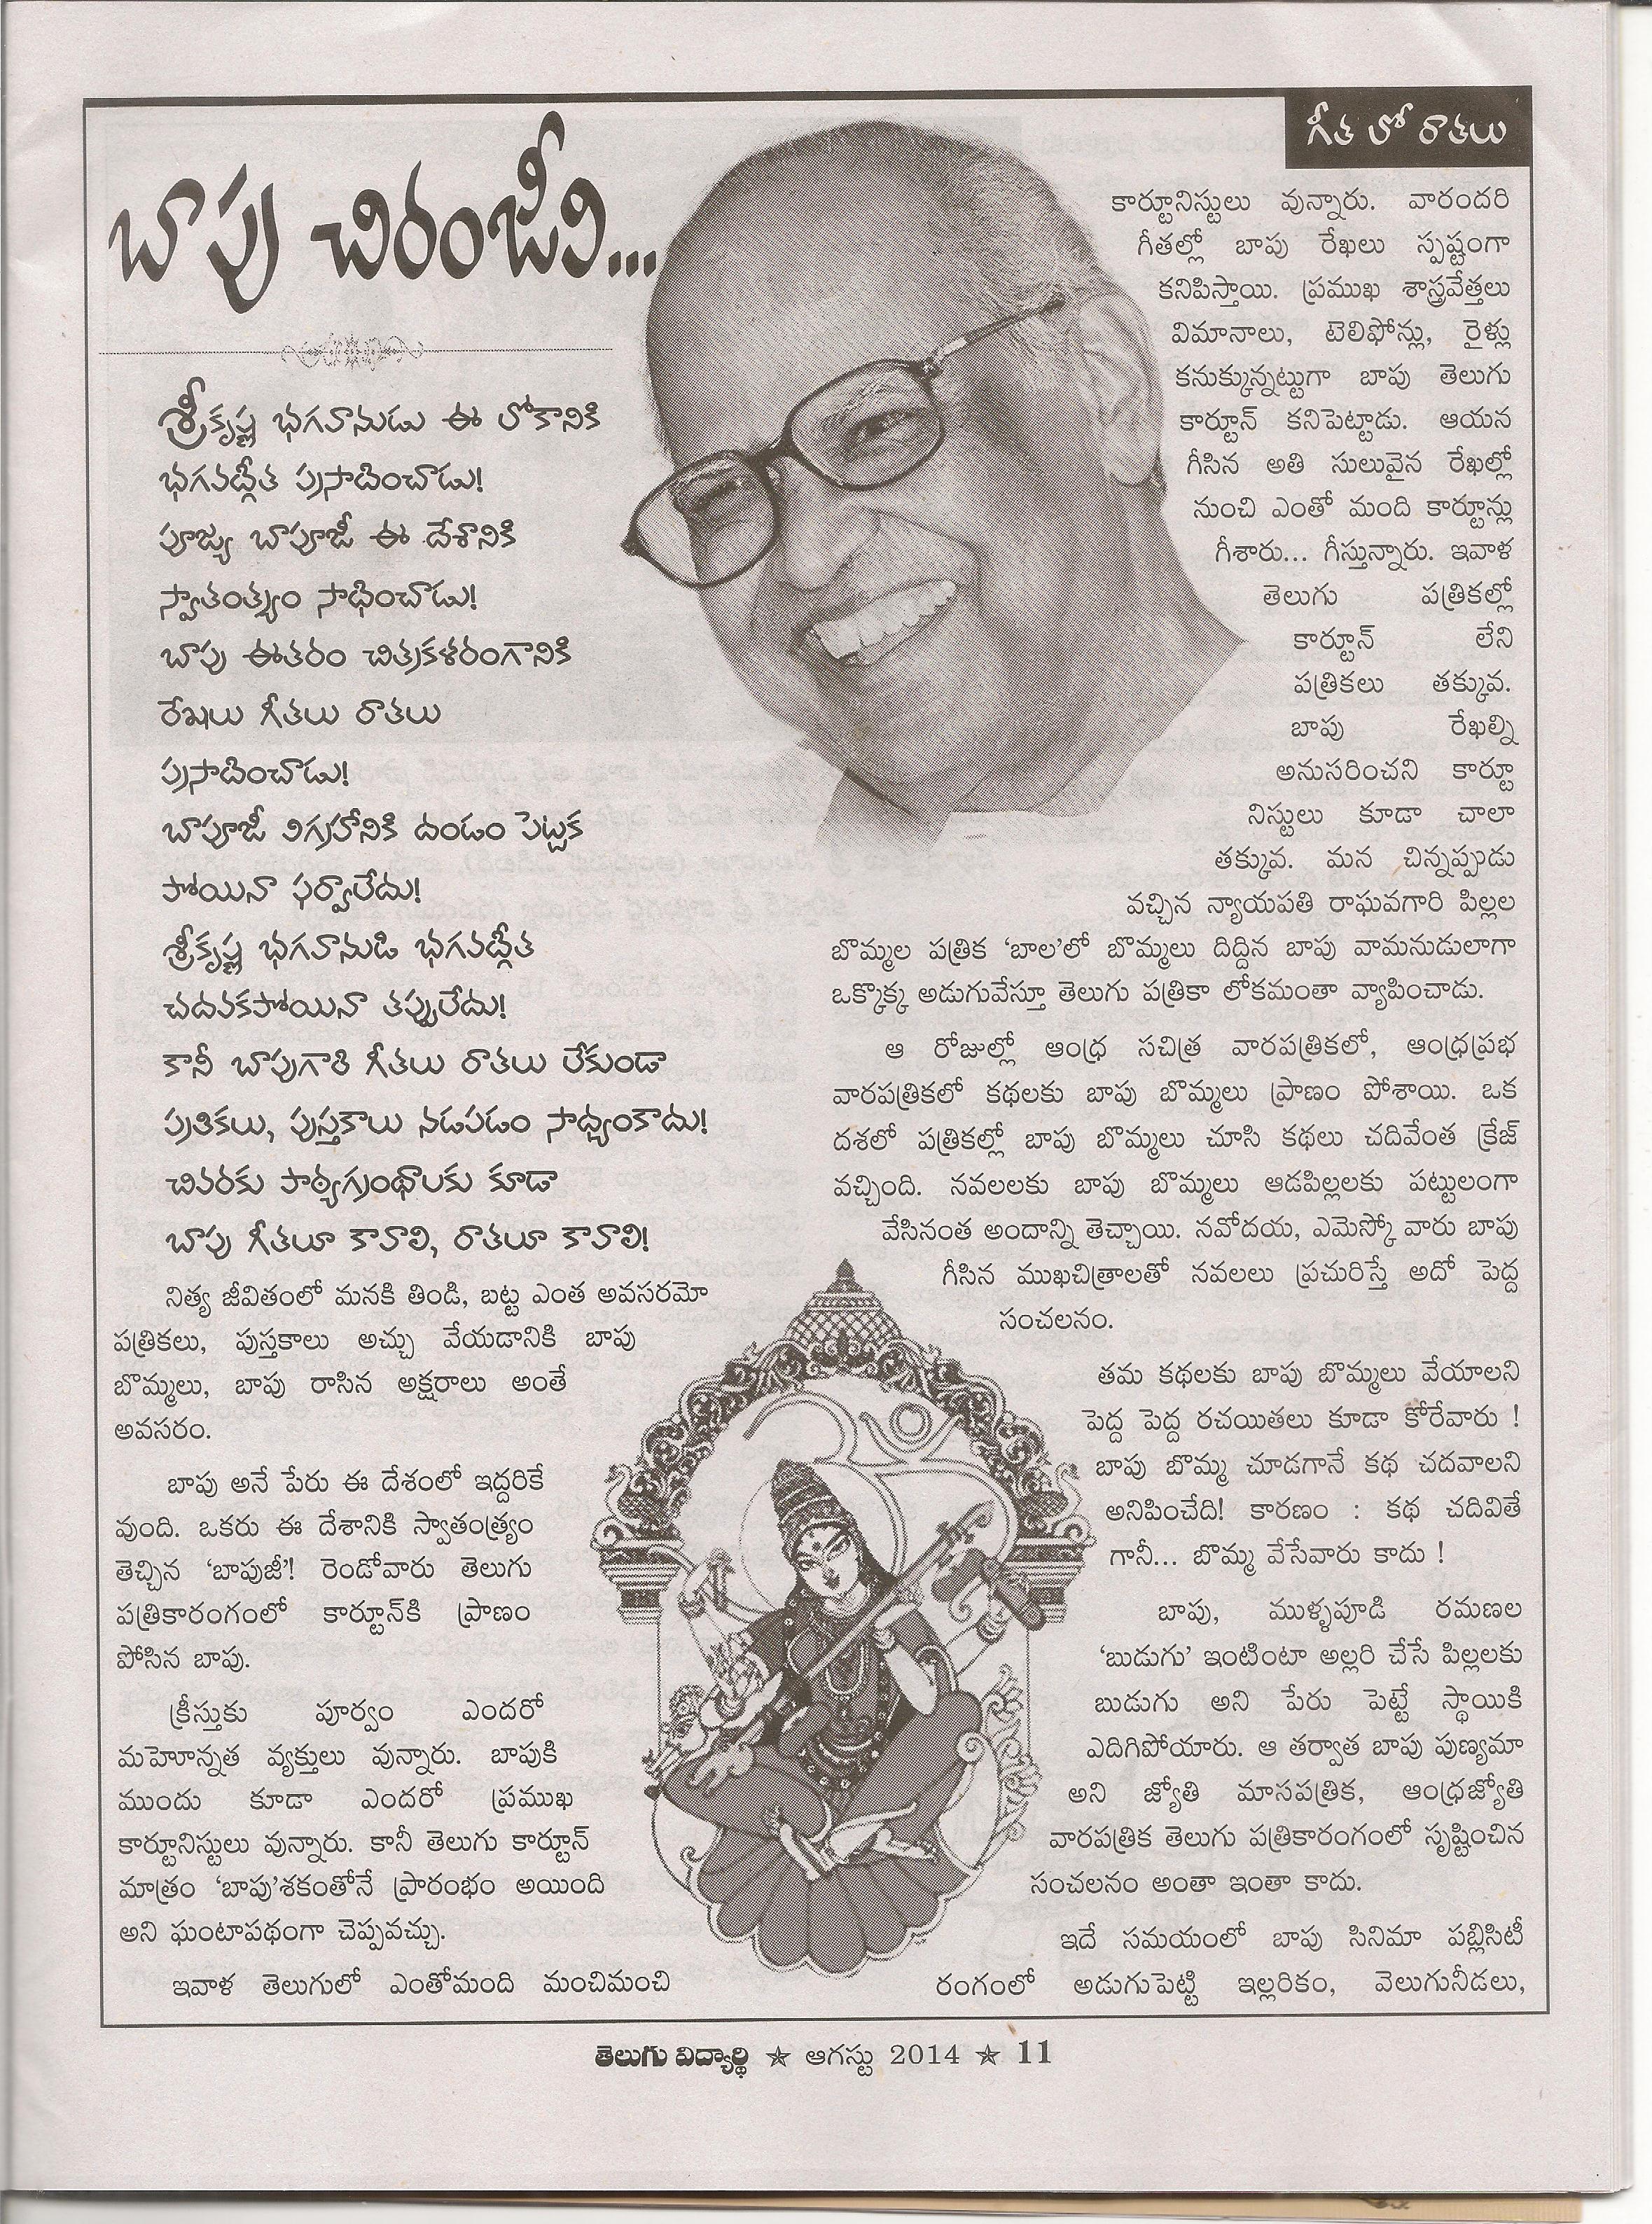 గీత లో రాతలు
బాపు చిరంజీవి...
శ్రీకృష్ణ భగవానుడు ఈ లోకానికి
భగవద్గీత ప్రసాదించాడు!
పూజ్య బాపూజీ ఈ దేశానికి
స్వాతంత్ర్యం సాధించాడు!
బాపు ఈతరం చిత్రకళారంగానికి
రేఖలు గీతలు రాతలు
ప్రసాదించాడు!
బాపూజీ విగ్రహానికి దండం పెట్టక
పోయినా ఫర్వాలేదు!
శ్రీకృష్ణ భగవానుడి భగవద్గీత
చదవకపోయినా తప్పులేదు!
కానీ బాపుగారి గీతలు రాతలు లేకుండా
ప్రతికలు, పుస్తకాలు నడపడం సాధ్యంకాదు!
చివరకు పాఠ్యగ్రంథాలకు కూడా
బాపు గీతలూ కావాలి, రాతలూ కావాలి!
నిత్య జీవితంలో మనకి తిండి, బట్ట ఎంత అవసరమో
పత్రికలు, పుస్తకాలు అచ్చు వేయడానికి బాపు
బొమ్మలు, బాపు రాసిన అక్షరాలు అంతే
అవసరం.
బాపు అనే పేరు ఈ దేశంలో ఇద్దరికే
వుంది. ఒకరు ఈ దేశానికి స్వాతంత్ర్యం
తెచ్చిన ‘బాపుజీ’! రెండోవారు తెలుగు
పత్రికారంగంలో కార్టూన్‌కి ప్రాణం
పోసిన బాపు.
క్రీస్తుకు పూర్వం ఎందరో
మహోన్నత వ్యక్తులు వున్నారు. బాపుకి
ముందు కూడా ఎందరో ప్రముఖ
కార్టూనిస్టులు వున్నారు. కానీ తెలుగు కార్టూన్
మాత్రం ‘బాపు’శకంతోనే ప్రారంభం అయింది
అని ఘంటాపథంగా చెప్పవచ్చు.
ఇవాళ తెలుగులో ఎంతోమంది మంచిమంచి
కార్టూనిస్టులు వున్నారు. వారందరి
గీతల్లో బాపు రేఖలు స్పష్టంగా
కనిపిస్తాయి. ప్రముఖ శాస్త్రవేత్తలు
విమానాలు, టెలిఫోన్లు, రైళ్లు
కనుక్కున్నట్టుగా బాపు తెలుగు
కార్టూన్ కనిపెట్టాడు. ఆయన
గీసిన అతి సులువైన రేఖల్లో
నుంచి ఎంతో మంది కార్టూన్లు
గీశారు... గీస్తున్నారు. ఇవాళ
తెలుగు పత్రికల్లో
కార్టూన్ లేని
పత్రికలు తక్కువ.
బాపు రేఖల్ని
అనుసరించని కార్టూ
నిస్టులు కూడా చాలా
తక్కువ. మన చిన్నప్పుడు
వచ్చిన న్యాయపతి రాఘవగారి పిల్లల
బొమ్మల పత్రిక ‘బాల’లో బొమ్మలు దిద్దిన బాపు వామనుడులాగా
ఒక్కొక్క అడుగువేస్తూ తెలుగు పత్రికా లోకమంతా వ్యాపించాడు.
ఆ రోజుల్లో ఆంధ్ర సచిత్ర వారపత్రికలో, ఆంధ్రప్రభ
వారపత్రికలో కథలకు బాపు బొమ్మలు ప్రాణం పోశాయి. ఒక
దశలో పత్రికల్లో బాపు బొమ్మలు చూసి కథలు చదివేంత క్రేజ్
వచ్చింది. నవలలకు బాపు బొమ్మలు ఆడపిల్లలకు పట్టులంగా
వేసినంత అందాన్ని తెచ్చాయి. నవోదయ, ఎమెస్కో వారు బాపు
గీసిన ముఖచిత్రాలతో నవలలు ప్రచురిస్తే అదో పెద్ద
సంచలనం.
తమ కథలకు బాపు బొమ్మలు వేయాలని
పెద్ద పెద్ద రచయితలు కూడా కోరేవారు !
బాపు బొమ్మ చూడగానే కథ చదవాలని
అనిపించేది! కారణం : కథ చదివితే
గానీ... బొమ్మ వేసేవారు కాదు !
బాపు, ముళ్ళపూడి రమణల
‘బుడుగు’ ఇంటింటా అల్లరి చేసే పిల్లలకు
బుడుగు అని పేరు పెట్టే స్థాయికి
ఎదిగిపోయారు. ఆ తర్వాత బాపు పుణ్యమా
అని జ్యోతి మాసపత్రిక, ఆంధ్రజ్యోతి
వారపత్రిక తెలుగు పత్రికారంగంలో సృష్టించిన
సంచలనం అంతా ఇంతా కాదు.
ఇదే సమయంలో బాపు సినిమా పబ్లిసిటీ
రంగంలో అడుగుపెట్టి ఇల్లరికం, వెలుగునీడలు,
తెలుగు విద్యార్థి ★ ఆగస్టు 2014 ★ 11